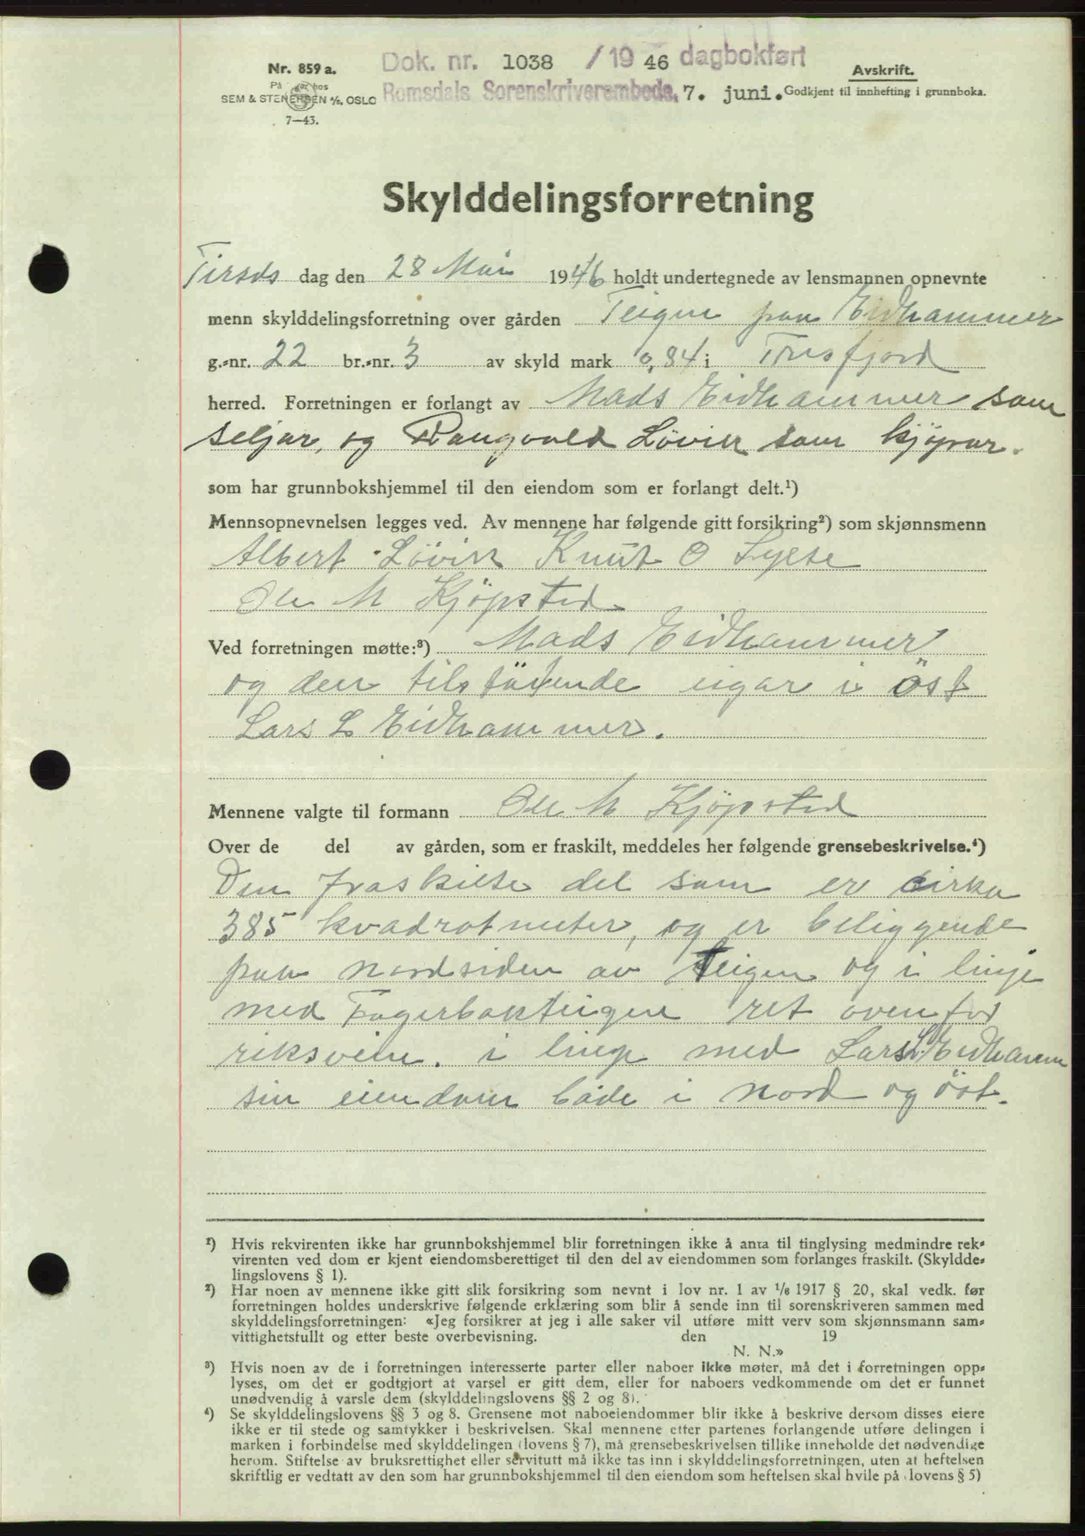 Nr. 859 a.
På lager hos
SEM & STENERSEN A/S, OSLO
7—43.
Dok. nr. 1038 /19 46 dagbokført
Romsdals Sorenskriverembede, 7. juni.
Avskrift.
Godkjent til innhefting i grunnboka.
Skylddelingsforretning
Tirsds dag den 28 Mai 1946 holdt undertegnede av lensmannen opnevnte
menn skylddelingsforretning over gården Teigen paa Eidhammer
g.-nr. 22 br.-nr. 3 av skyld mark 0,84 i Tresfjord
herred. Forretningen er forlangt av Mads Eidhammer som
seljar, og Rangvald Løvik som kjøpar.
som har grunnbokshjemmel til den eiendom som er forlangt delt.¹)
Mennsopnevnelsen legges ved. Av mennene har følgende gitt forsikring²) som skjønnsmenn
Albert Løvik Knut O Sylte
Ole M Kjöpstad
Ved forretningen møtte:³) Mads Eidhammer
og den tilstötende eigar i öst
Lars L Eidhammer.
Mennene valgte til formann Ole M Kjöpstad
Over de del av gården, som er fraskilt, meddeles her følgende grensebeskrivelse.⁴)
Den fraskilte del som er cirka
385 kvadratmeter, og er beliggende
paa nordsiden av Teigen og i linje
med Fagerbakteigen ret ovenfor
riksveien. i linje med Lars L. Eidhamm
sin eiendom både i nord og öst.
¹) Hvis rekvirenten ikke har grunnbokshjemmel blir forretningen ikke å anta til tinglysing medmindre rek-
virenten ved dom er kjent eiendomsberettiget til den del av eiendommen som forlanges fraskilt. (Skyldde-
lingslovens § 1).
²) Har noen av mennene ikke gitt slik forsikring som nevnt i lov nr. 1 av 1/6 1917 § 20, skal vedk. før
forretningen holdes underskrive følgende erklæring som blir å sende inn til sorenskriveren sammen med
skylddelingsforretningen: «Jeg forsikrer at jeg i alle saker vil utføre mitt verv som skjønnsmann sam-
vittighetsfullt og etter beste overbevisning. den 19
N. N.»
³) Hvis noen av de i forretningen interesserte parter eller naboer ikke møter, må det i forretningen opp-
lyses, om det er godtgjort at varsel er gitt dem, eller for naboers vedkommende om det er funnet
unødvendig å varsle dem (skylddelingslovens §§ 2 og 8).
⁴) Se skylddelingslovens §§ 3 og 8. Grensene mot naboeiendommer blir ikke å beskrive dersom disses eiere
ikke er til stede og samtykker i beskrivelsen. Skal mennene etter partenes forlangende utføre delingen i
marken i forbindelse med skylddelingen (lovens § 7), må grensebeskrivelsen tillike inneholde det nødvendige
herom. Stiftelse av bruksrettighet eller servitutt må ikke tas inn i skylddelingsforretningen, uten at heftelsen
skriftlig er vedtatt av den som har grunnbokshjemmel til den eiendom som heftelsen skal hvile på (lovens § 5)